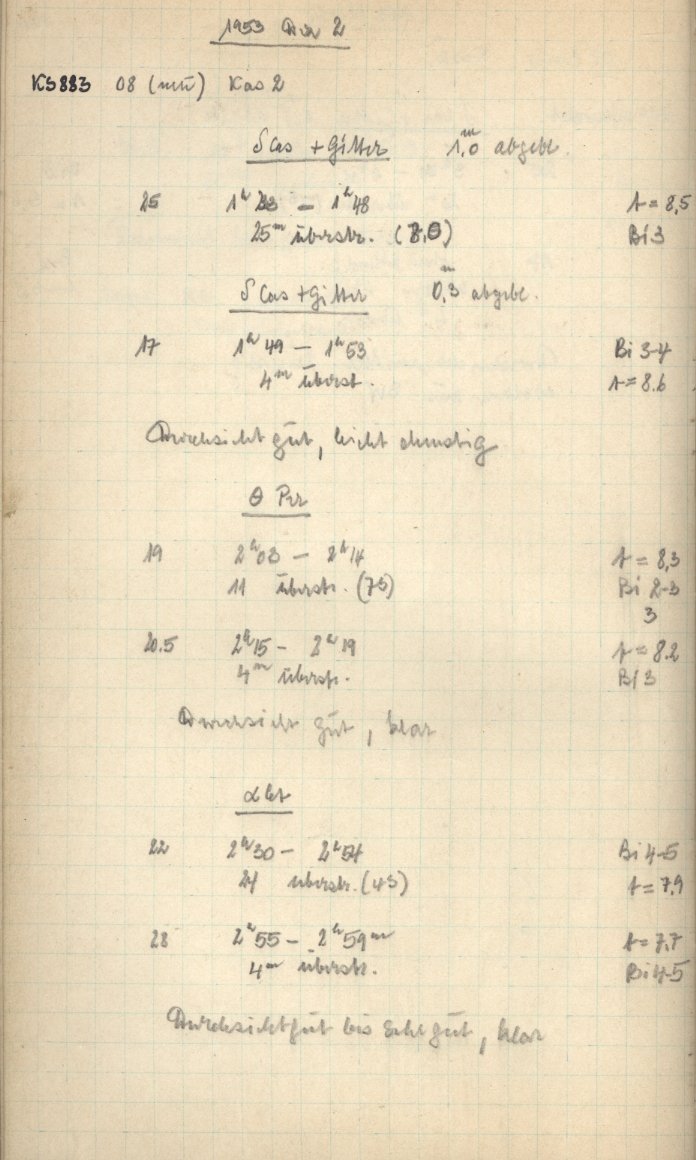 1953 Dez 2
KS 883 08 (neu) Kas 2
δ Cas + Gitter 1,0ᵐ abgebl.
25 1ʰ 23 — 1ʰ 48 t = 8,5
25ᵐ überstr. Bi 3
δ Cas + Gitter 0,3ᵐ abgebl.
17 1ʰ 49 — 1ʰ 53 Bi 3-4
4ᵐ überst. t = 8.6
Durchsicht gut, leicht dunstig
θ Per
19 2ʰ 03 — 2ʰ 14 t = 8,3
11 überstr. (75) Bi 2-3
3
20.5 2ʰ 15 — 2ʰ 19 t = 8.2
4ᵐ überstr. Bi 3
Durchsicht gut, klar
α Cet
22 2ʰ 30 — 2ʰ 54 Bi 4-5
24 überstr. (45) t = 7,9
28 2ʰ 55 — 2ʰ 59ᵐ t = 7,7
4ᵐ überstr. Bi 4-5
Durchsicht gut bis sehr gut, klar